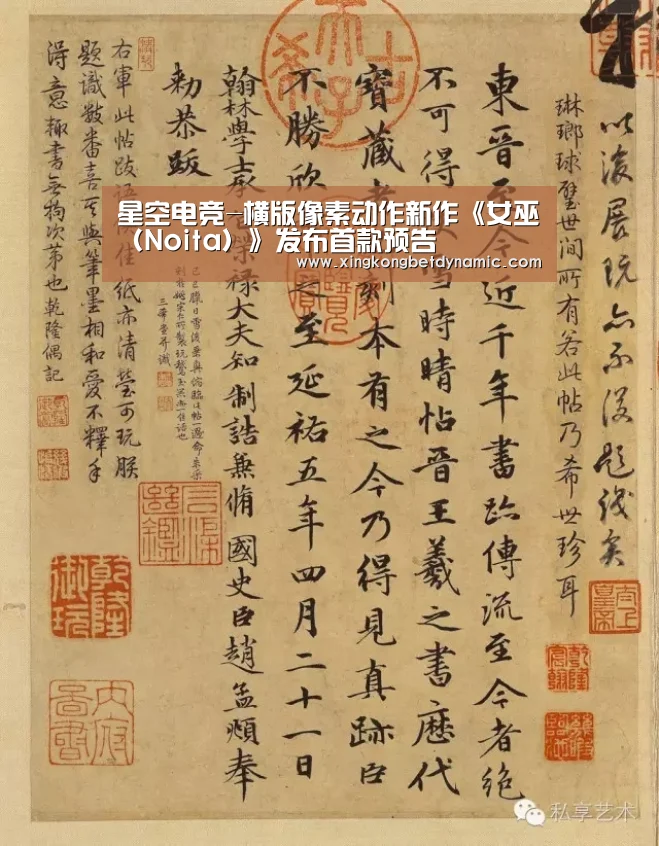 以後展玩亦不復題識矣
琳瑯球璧世間所有若此帖乃希世珍耳
東晉至今近千年書跡傳流至今者絕
不可得雪時晴帖晉王羲之書歷代
寶藏者刻本有之今乃得見真跡臣
不勝欣至延祐五年四月二十一日
翰林學士承榮祿大夫知制誥兼脩國史臣趙孟頫奉
勑恭跋
右軍此帖跋語佳紙亦清瑩可玩朕
題識數番喜其與筆墨相和愛不釋手
得意輒書無拘次第也乾隆偶記
太上皇帝
乾隆御玩
星空电竞-横版像素动作新作《女巫
（Noita）》发布首款预告
www.xingkongbetdynamic.com
私享艺术